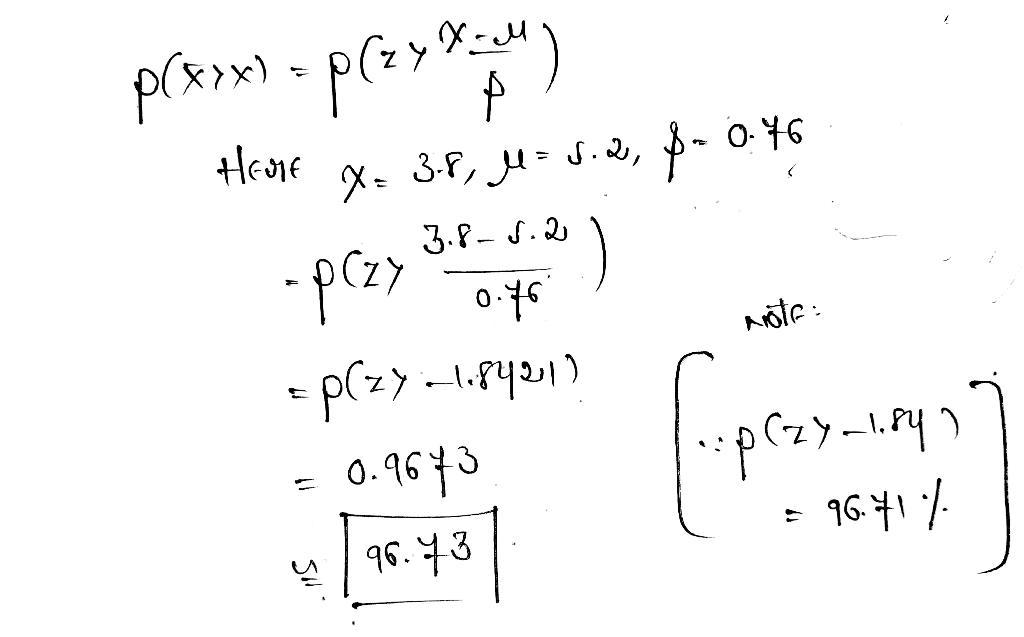 p(x̄>x) = p(z> x-μ / p)
Here x = 3.8, μ = 5.2, p = 0.76
= p(z> 3.8-5.2 / 0.76)
= p(z> -1.8421)
= 0.9673
≅ 96.73
Note:
∵ p(z> -1.84)
= 96.71 %